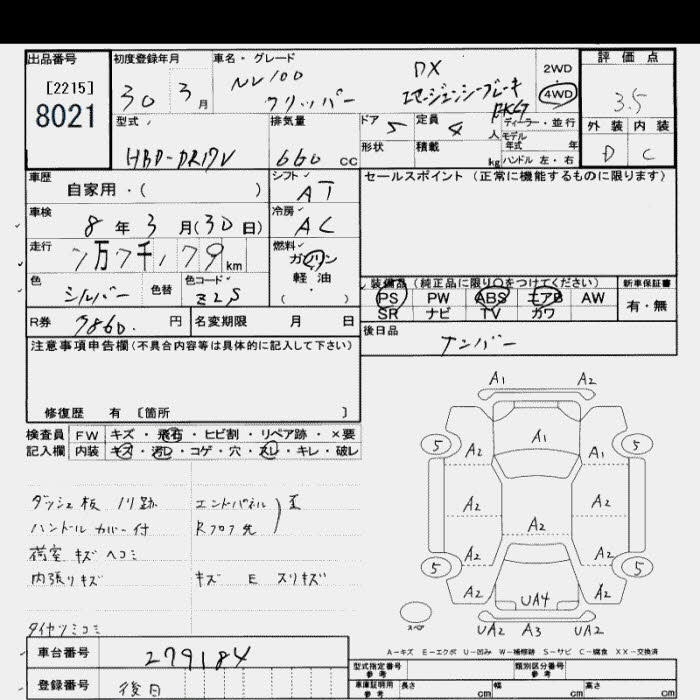 出品番号 初度登録年月 車名・グレード 評価点
[2215]
8021
30 3月 NV100 クリッパー DX エマージェンシーブレーキ PKG
2WD
4WD
3.5
型式 排気量 ドア 5 定員 4人 ディーラー・並行 外装 内装
モデル年式 年
HBD-DR17V 660 cc 形状 積載 kg ハンドル 左・右 D C
車歴 シフト セールスポイント (正常に機能するものに限ります)
自家用・( ) AT
車検 冷房
8年 3月(30日) AC
走行 燃料
7万7千,179km ガソリン
軽油
( )
色 色替 色コード
シルバー Z2S
装備品 (純正品に限り○をつけてください) 新車保証書
PS PW ABS エアB AW 有・無
SR ナビ TV カワ
R券 9860.円 名変期限 月 日
後日品
ナンバー
注意事項申告欄(不具合内容等は具体的に記入して下さい)
修復歴 有 [箇所 ]
検査員 FW キズ・飛石・ヒビ割・リペア跡・×要
記入欄 内装 キズ・汚レ・コゲ・穴・スレ・キレ・破レ
ダッシュ板 ノリ跡 エンドパネル
ハンドルカバー付 Rフロア先 歪
荷室 キズ ヘコミ
内張りキズ キズ E スリキズ
タイヤツミコミ
A1 A2
5 A2 A1 A2 5
A2 A2 A2
5 A2 A2 5
A2 UA4 A2
スペア UA2 A3 UA2
A-キズ E-エクボ U-凹み W-補修跡 S-サビ C-腐食 XX-交換済
車台番号 279184
型式指定番号 参考 類別区分番号 参考
登録番号 後日
車庫証明用 参考 長さ cm 幅 cm 高さ cm